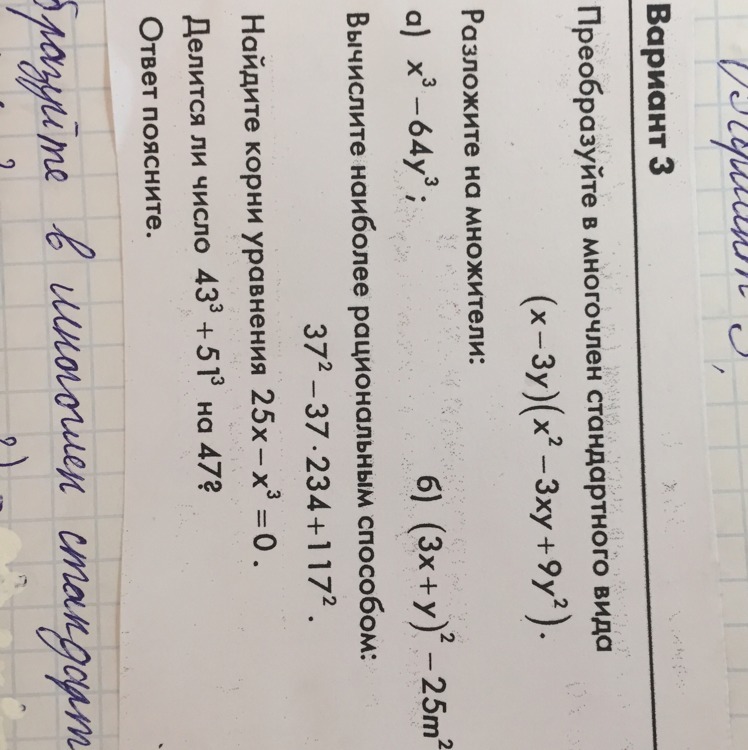 Вариант 3
Преобразуйте в многочлен стандартного вида
(x – 3y)(x² – 3xy + 9y²).
Разложите на множители:
а) x³ – 64y³; б) (3x + y)² – 25m²
Вычислите наиболее рациональным способом:
37² – 37 · 234 + 117².
Найдите корни уравнения 25x – x³ = 0.
Делится ли число 43³ + 51³ на 47?
Ответ поясните.
бразуйте в многочлен стандарт